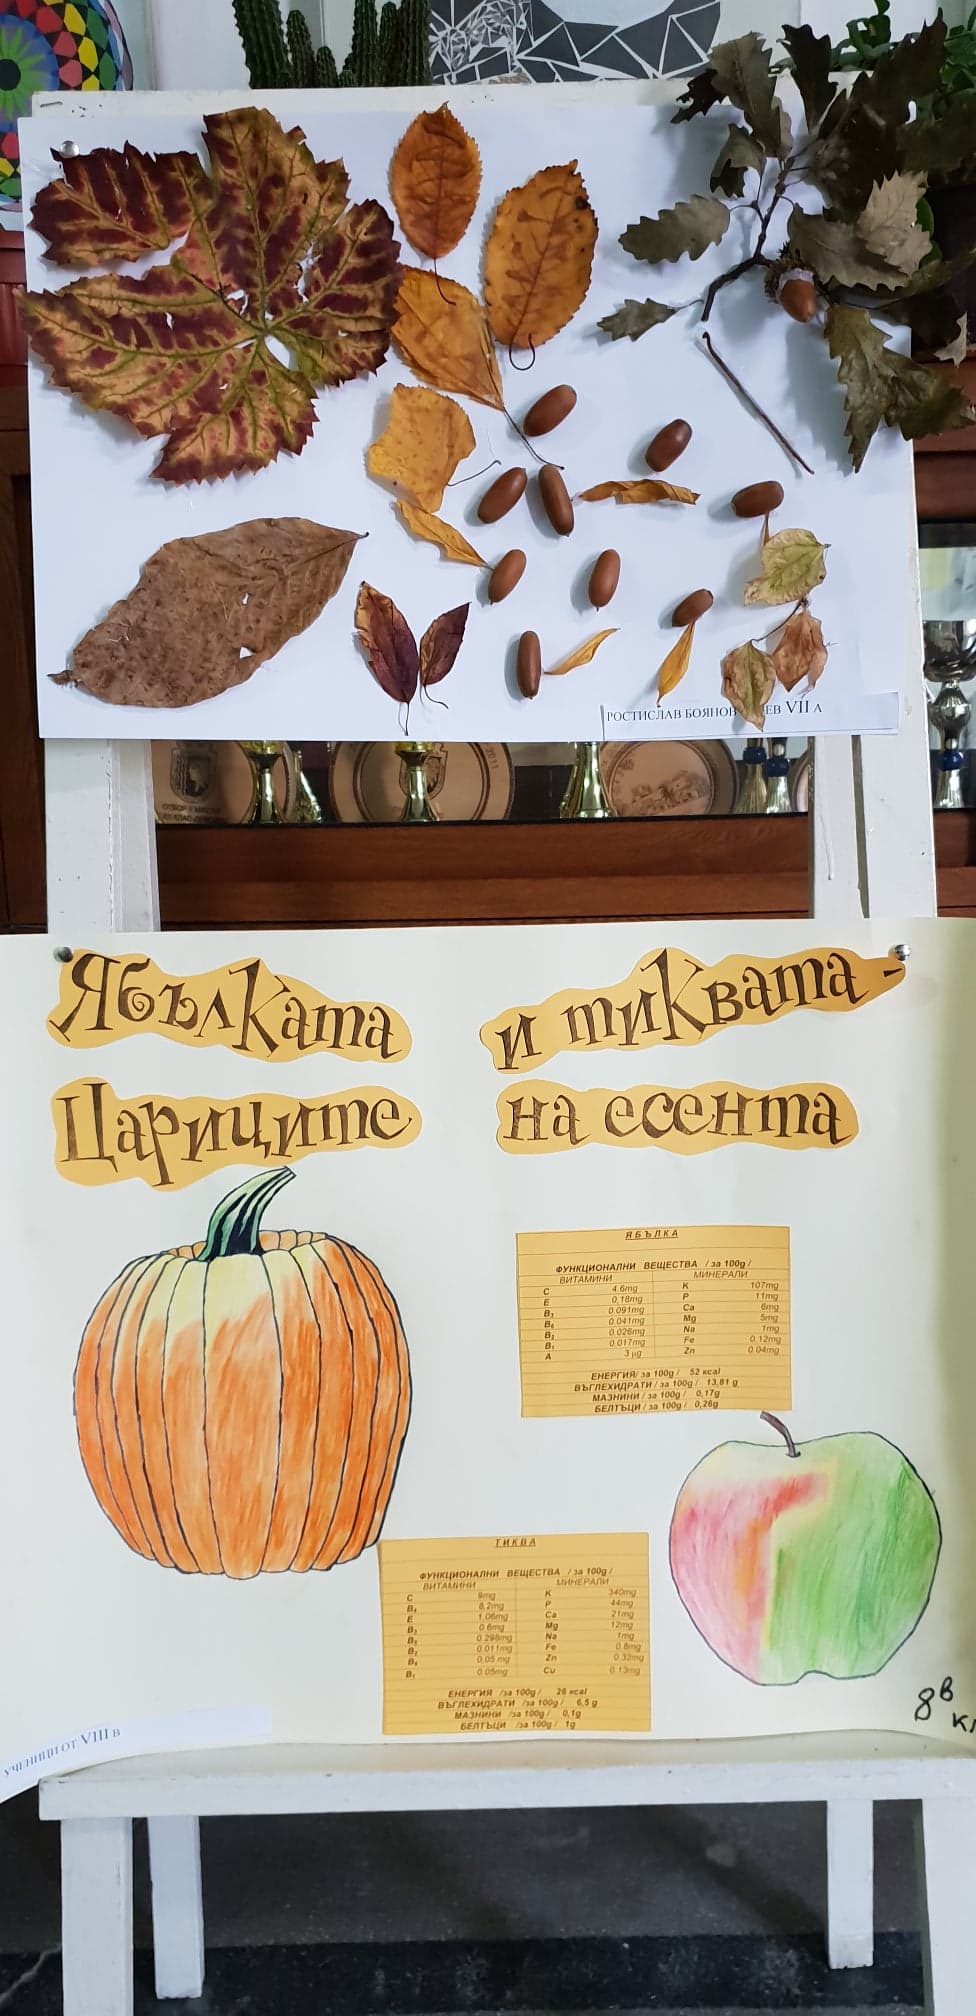 РОСТИСЛАВ БОЯНОВ VII А
Ябълката и тиквата -
Цариците на есента
ЯБЪЛКА
ФУНКЦИОНАЛНИ ВЕЩЕСТВА / за 100g /
ВИТАМИНИ МИНЕРАЛИ
C 4.6mg K 107mg
E 0.18mg P 11mg
B₃ 0.091mg Ca 6mg
B₆ 0.041mg Mg 5mg
B₂ 0.026mg Na 1mg
B₁ 0.017mg Fe 0.12mg
A 3 µg Zn 0.04mg
ЕНЕРГИЯ/ за 100g / 52 kcal
ВЪГЛЕХИДРАТИ / за 100g / 13,81 g
МАЗНИНИ / за 100g / 0,17g
БЕЛТЪЦИ / за 100g / 0,26g
ТИКВА
ФУНКЦИОНАЛНИ ВЕЩЕСТВА / за 100g /
ВИТАМИНИ МИНЕРАЛИ
C 9mg K 340mg
8,2mg P 44mg
E 1,06mg Ca 21mg
0.6mg Mg 12mg
0.298mg Na 1mg
0.011mg Fe 0.8mg
0,05 mg Zn 0.32mg
B₁ 0.05mg Cu 0.13mg
ЕНЕРГИЯ /за 100g / 26 kcal
ВЪГЛЕХИДРАТИ /за 100g / 6,5 g
МАЗНИНИ /за 100g / 0,1g
БЕЛТЪЦИ /за 100g / 1g
8в
кл
УЧЕНИЦИ ОТ VIII в